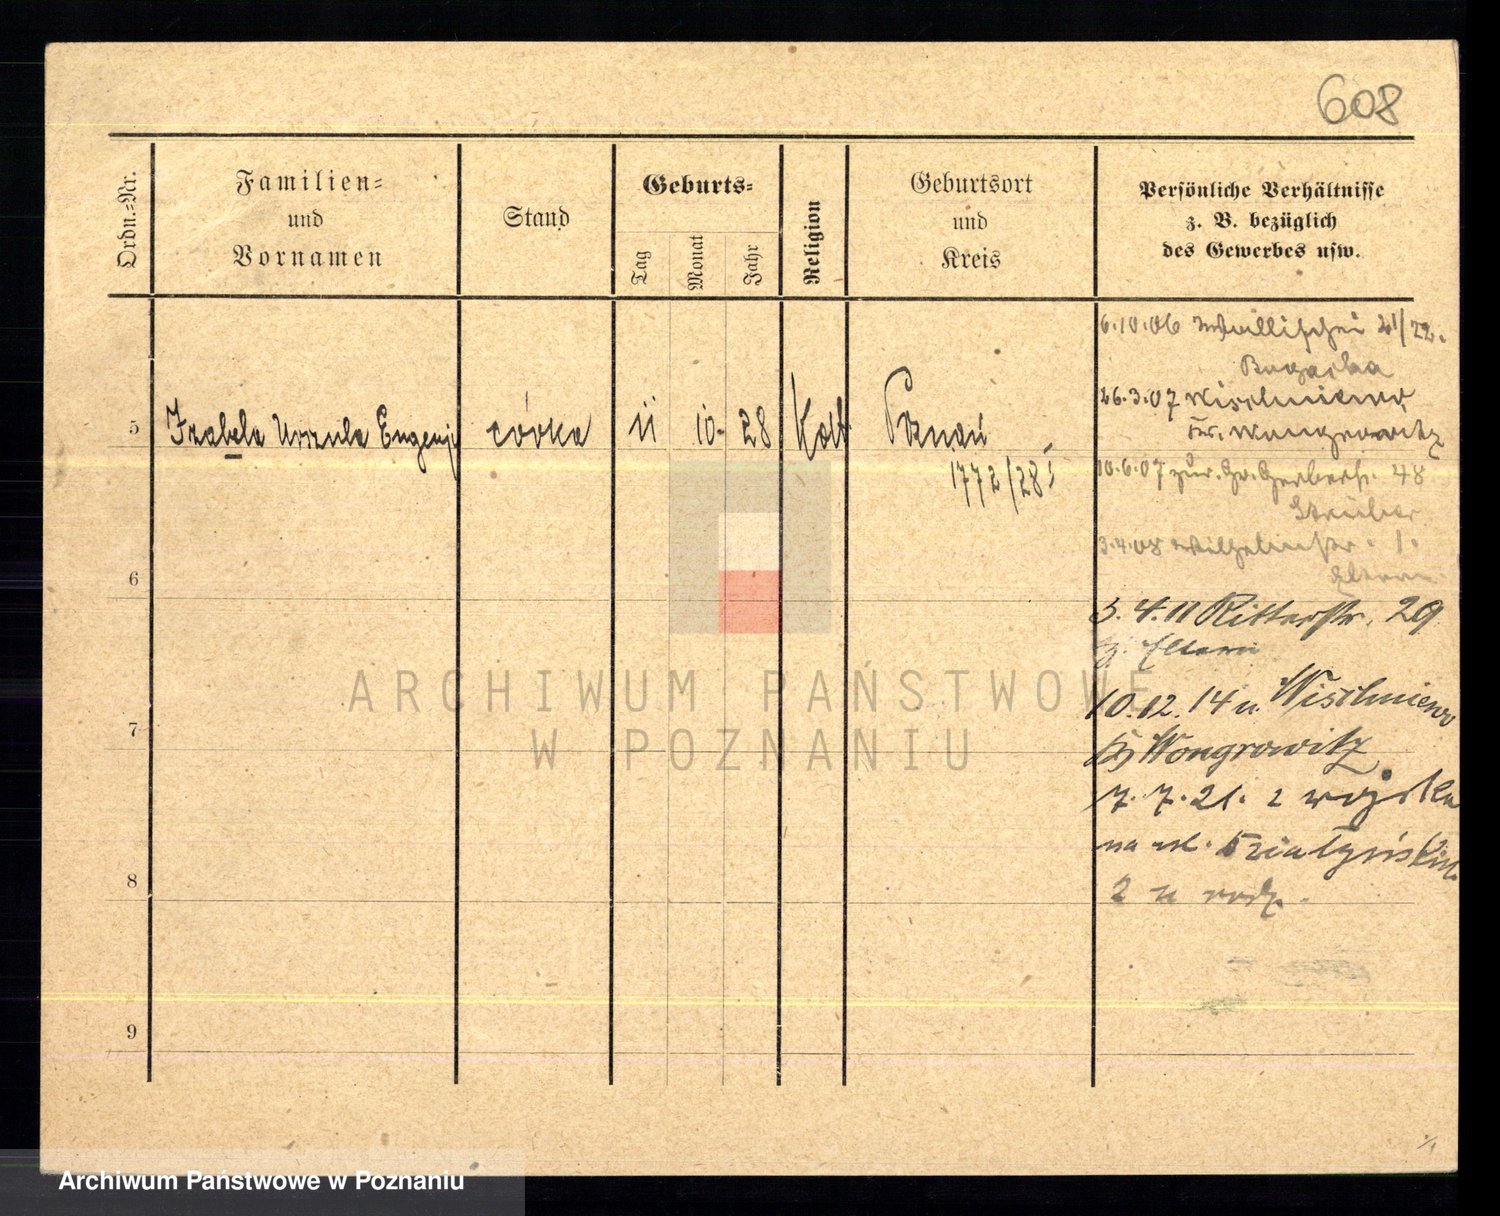 608
Ordn.-Nr.
Familien-
und
Vornamen
Stand
Geburts-
Tag
Monat
Jahr
Religion
Geburtsort
und
Kreis
Persönliche Verhältnisse
z. B. bezüglich
des Gewerbes usw.
5 Izabela Urszula Eugenja córka 11 10. 28 Kath Poznań
1772/28
6
7
8
9
6.10.06 Wallischei 21/22.
26.3.07 Wischniewo
Kr. Wongrowitz
10.6.07 zur. Gr. Gerberstr. 48
3.4.08 Wilhelmstr. 1.
Eltern
3.4.11 Ritterstr. 29
z. Eltern
10.12.14 n. Wischniewo
Kr Wongrowitz
7.7.21. z wojska
na ul. Działyńskich
2 u rodz.
ARCHIWUM PAŃSTWOWE
W POZNANIU
Archiwum Państwowe w Poznaniu